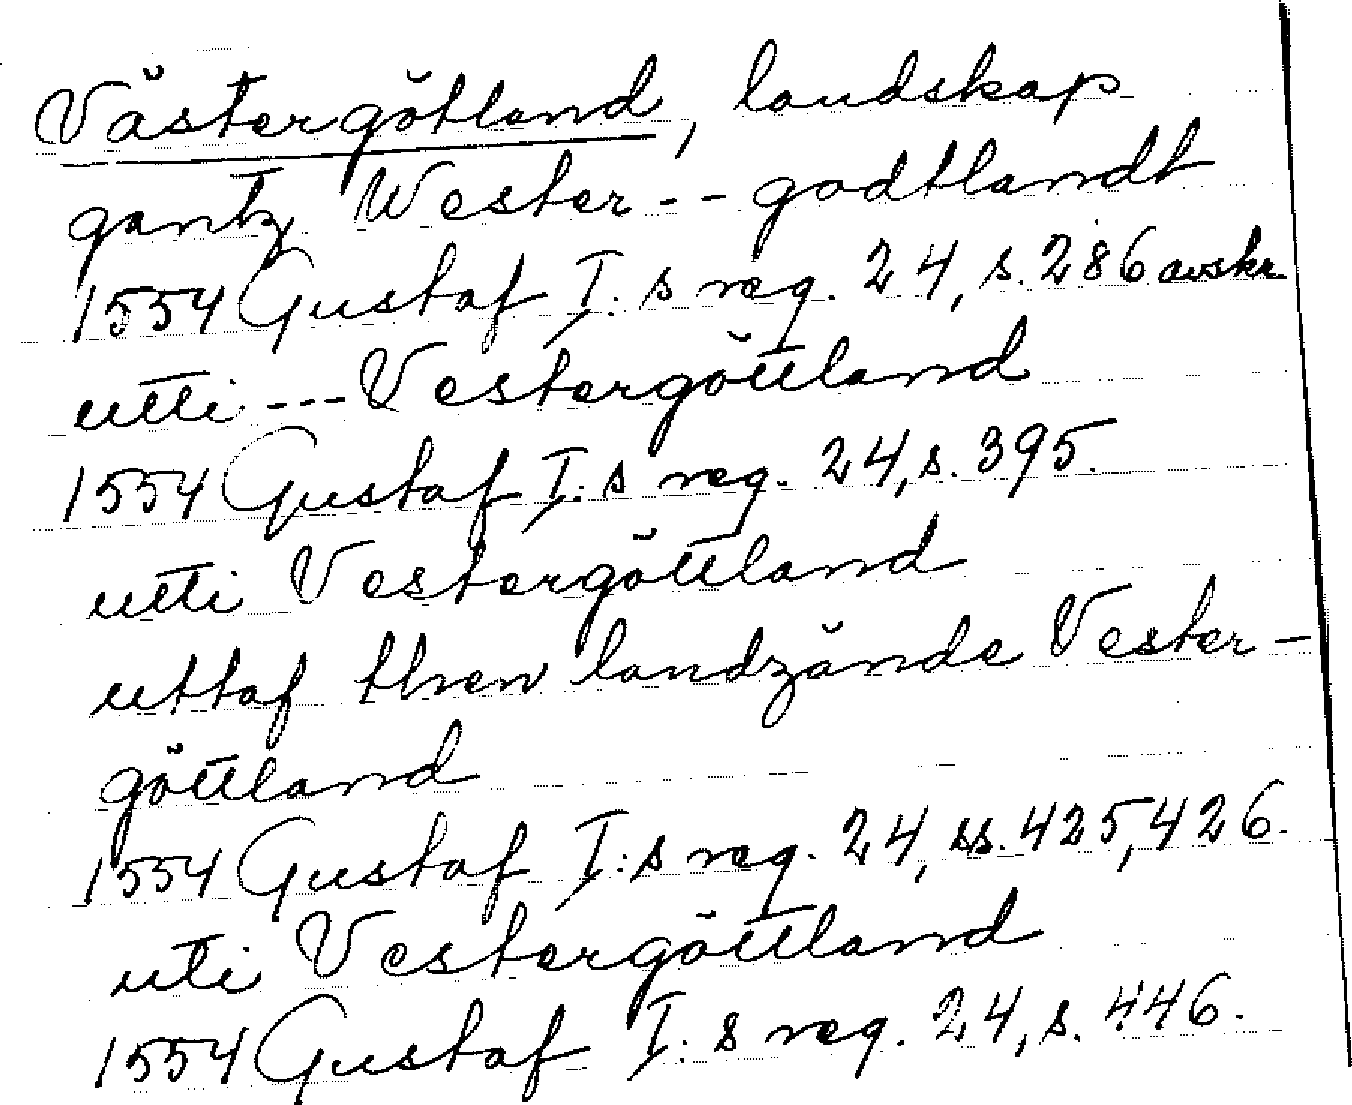 Västergötland, landskap
gantz Wester--godtlandt
1554 Gustaf I:s reg. 24, s. 286 avskr
utti---Vestergöttland
1554 Gustaf I:s reg. 24, s. 395.
utti Vestergöttland
uttaf then landzände Vester-
göttland
1554 Gustaf I:s reg. 24, ss. 425, 426.
uti Vestergöttland
1554 Gustaf I:s reg. 24, s. 446.